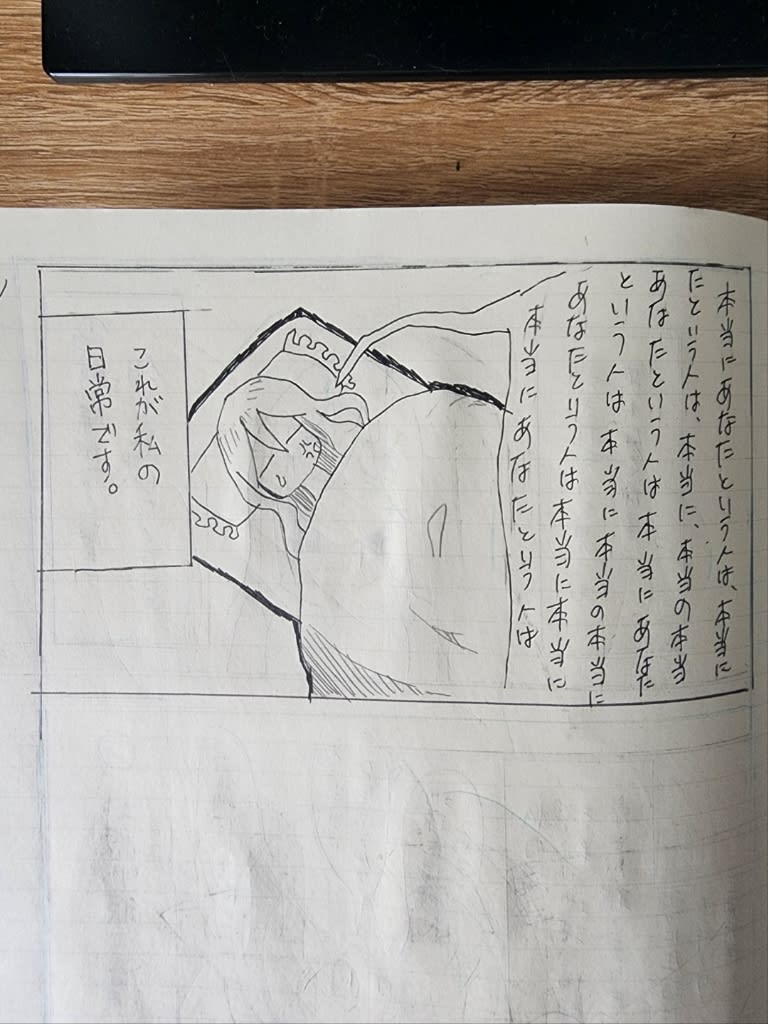 本当にあなたという人は、本当に
たという人は、本当に、本当の本当
あなたという人は本当にあなた
という人は本当に本当の本当に
あなたという人は本当に本当に
本当にあなたという人は
これが私の
日常です。